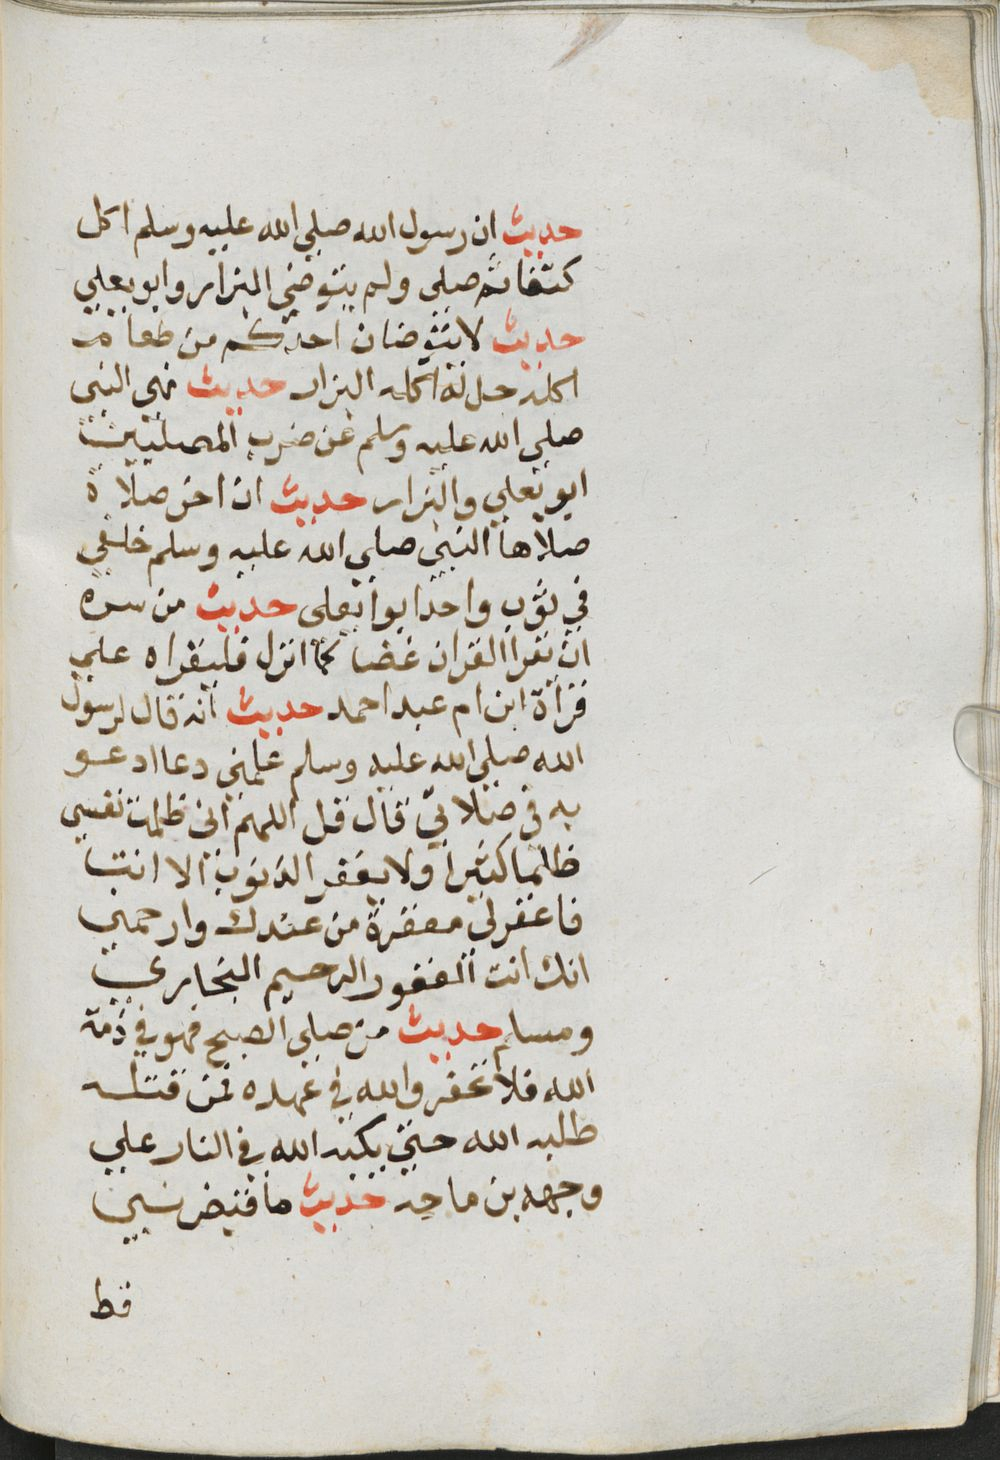 حديث ان رسول الله صلي الله عليه وسلم اكل
كتفا ثم صلي ولم يتوضي البزار وابو يعلي
حديث لا يتوضان احدكم من طعام
اكله حل له اكله البزار حديث نهي النبي
صلي الله عليه وسلم عن ضرب المصليين
ابو يعلي والبزار حديث ان اخر صلاة
صلاها النبي صلي الله عليه وسلم خلفي
في ثوب واحد ابوا يعلي حديث من سره
ان يقرا القران غضا كما انزل فليقراه علي
قرأة ابن ام عبد احمد حديث انه قال لرسول
الله صلي الله عليه وسلم علمني دعا ادعو
به في صلاتي قال قل اللهم اني ظلمت نفسي
ظلما كثيرا ولا يغفر الذنوب الا انت
فاغفر لي مغفرة من عندك وارحمني
انك انت الغفور الرحيم البخاري
ومسلم حديث من صلي الصبح فهو في ذمة
الله فلا تخفروا الله في عهده فمن قتله
طلبه الله حتي يكبه الله في النار علي
وجهه بن ماجه حديث ما قبض نبي
قط